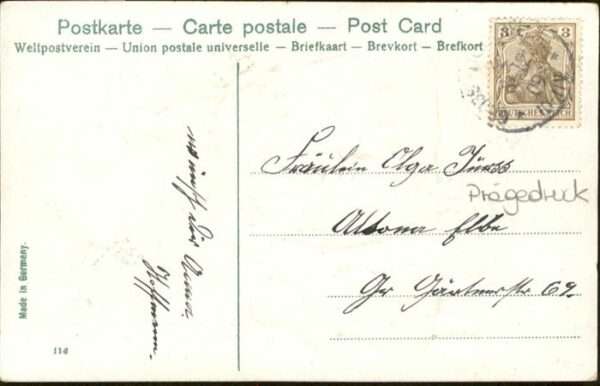 Postkarte — Carte postale — Post Card
Weltpostverein — Union postale universelle — Briefkaart — Brevkort — Brefkort
3 3
DEUTSCHES REICH
wünscht Dir Anni
Hoffmann.
Fräulein Olga Jürss
Prägedruck
Altona Elbe
Gr Gärtnerstr 69.
Made in Germany.
116